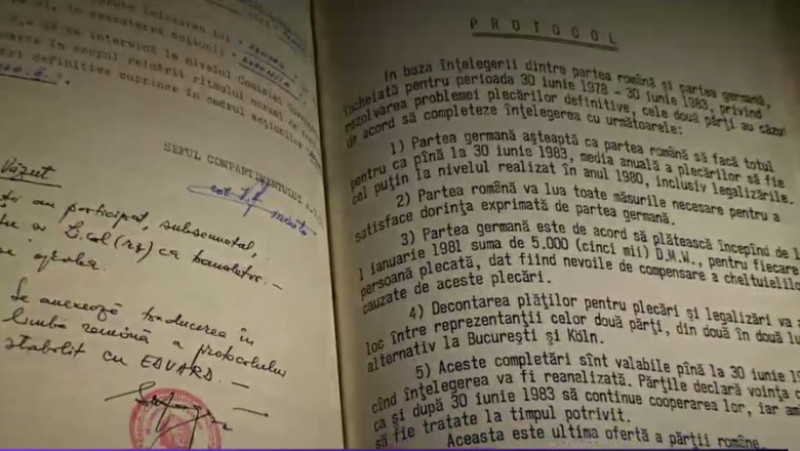 lor
în executarea acţiunii
să se intervină la nivelul Comisiei
în scopul reducerii ritmului normal de
definitive cuprinse în cadrul acţiunilor
ŞEFUL COMPARTIMENTULUI
Văzut
au participat, subsemnatul,
Lt.col (rz) ca translator. -
Se anexează traducerea în
limba română a protocolului
stabilit cu EDUARD. -
PROTOCOL
In baza înţelegerii dintre partea română şi partea germană,
încheiată pentru perioada 30 iunie 1978 - 30 iunie 1983, privind
rezolvarea problemei plecărilor definitive, cele două părţi au căzut
de acord să completeze înţelegerea cu următoarele:
1) Partea germană aşteaptă ca partea română să facă totul
pentru ca pînă la 30 iunie 1983, media anuală a plecărilor să fie
cel puţin la nivelul realizat în anul 1980, inclusiv legalizările.
2) Partea română va lua toate măsurile necesare pentru a
satisface dorinţa exprimată de partea germană.
3) Partea germană este de acord să plătească începînd de l
1 ianuarie 1981 suma de 5.000 (cinci mii) D.M.W., pentru fiecare
persoană plecată, dat fiind nevoile de compensare a cheltuielilo
cauzate de aceste plecări.
4) Decontarea plăţilor pentru plecări şi legalizări va
loc între reprezentanţii celor două părţi, din două în două lu
alternativ la Bucureşti şi Köln.
5) Aceste completări sînt valabile pînă la 30 iunie 19
cînd înţelegerea va fi reanalizată. Părţile declară voinţa
ca şi după 30 iunie 1983 să continue cooperarea lor, iar am
să fie tratate la timpul potrivit.
Aceasta este ultima ofertă a părţii române.